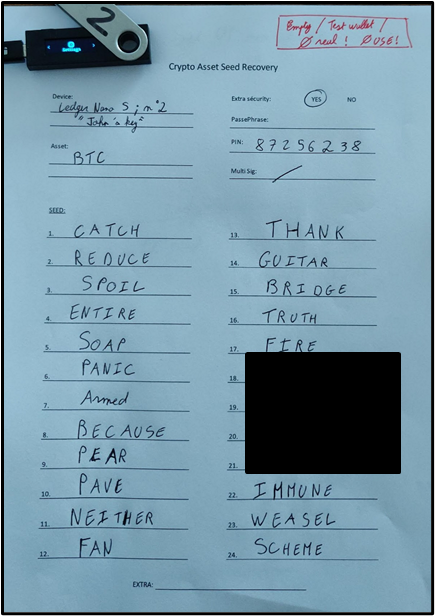 Empty / Test wallet /
Ø real ! Ø USE !
2
Settings
Crypto Asset Seed Recovery
Device:
Ledger Nano S ; n°2
"John's key"
Extra sécurity: YES NO
PassePhrase:
Asset:
BTC
PIN: 87256238
Multi Sig: /
SEED:
1. CATCH
2. REDUCE
3. SPOIL
4. ENTIRE
5. SOAP
6. PANIC
7. Armed
8. BECAUSE
9. PEAR
10. PAVE
11. NEITHER
12. FAN
13. THANK
14. GUITAR
15. BRIDGE
16. TRUTH
17. FIRE
18.
19.
20.
21.
22. IMMUNE
23. WEASEL
24. SCHEME
EXTRA: